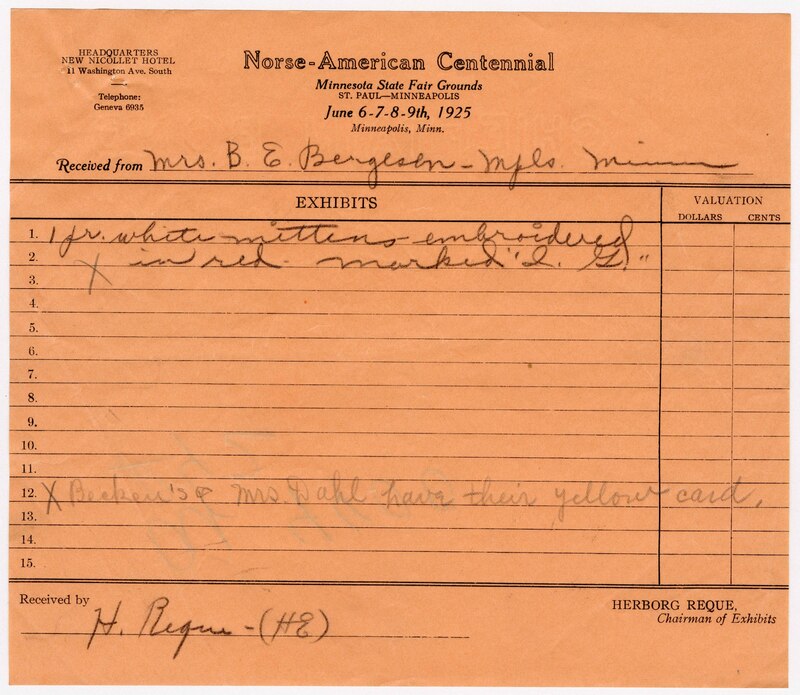 HEADQUARTERS
NEW NICOLLET HOTEL
11 Washington Ave. South
Telephone:
Geneva 6935
Norse-American Centennial
Minnesota State Fair Grounds
ST. PAUL—MINNEAPOLIS
June 6-7-8-9th, 1925
Minneapolis, Minn.
Received from Mrs. B. E. Bergeson - Mpls. Minn
EXHIBITS
VALUATION
DOLLARS CENTS
1. 1 pr. white mittens embroidered
2. X in red - marked "I. G."
3.
4.
5.
6.
7.
8.
9.
10.
11.
12. X Becken's & Mrs. Dahl have their yellow card.
13.
14.
15.
Received by H. Reque - (HE)
HERBORG REQUE,
Chairman of Exhibits